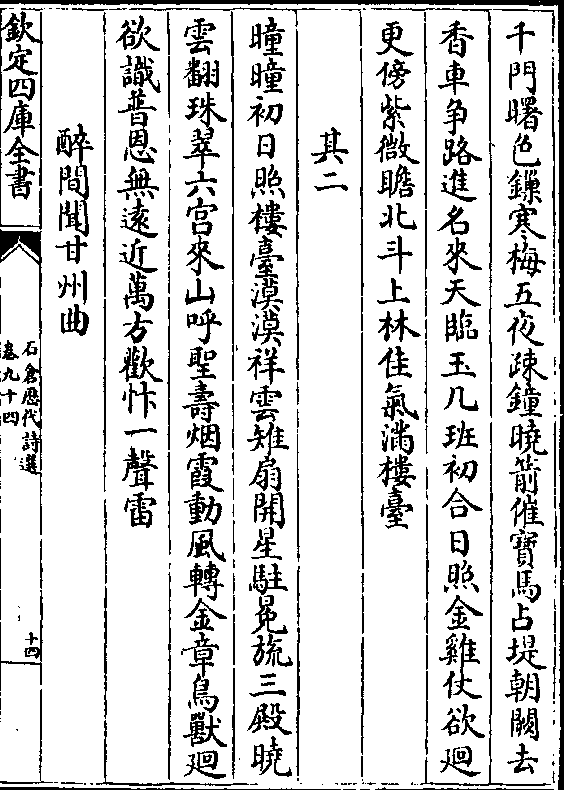 千門曙色鏁寒梅五夜疎鐘曉箭催寳馬占堤朝闕去
香車争路進名來天臨玉几班初合日照金雞仗欲廻
更傍紫微瞻北斗上林佳氣滿樓臺
其二
曈曈初日照樓臺漠漠祥雲雉扇開星駐冕旒三殿曉
雲翻珠翠六宫來山呼聖壽烟霞動風轉金章鳥獸廻
欲識普恩無遠近萬方歡忭一聲雷
醉間聞甘州曲
欽定四庫全書
石倉歴代詩選
卷九十四
十四